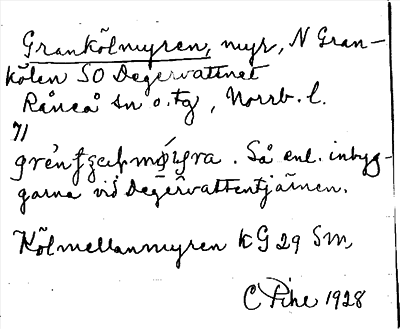 Grankölmyren, myr, N Gran-
kölen SO Degervattnet
Råneå sn o. tg, Norrb. l.
71
. Så enl. inbyg-
garna vid Degervattentjärnen.
Kölmellanmyren KG 29 Sm,
C Pihe 1928